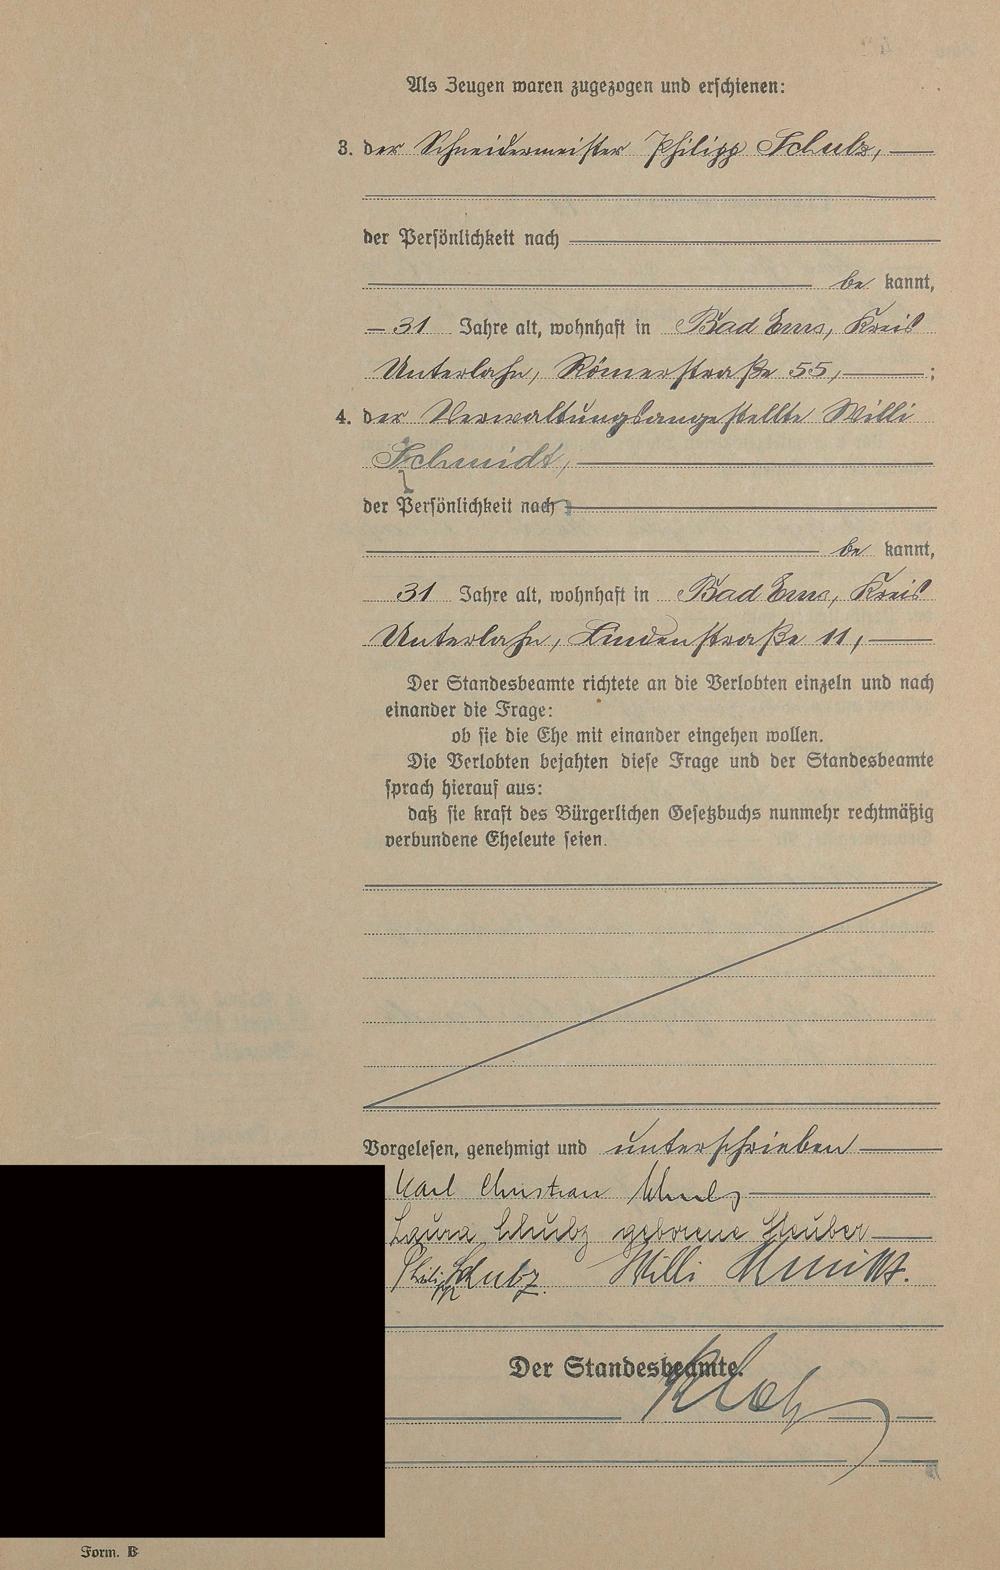 Als Zeugen waren zugezogen und erschienen:
3. der Schneidermeister Philipp Schulz,
der Persönlichkeit nach
be kannt,
31 Jahre alt, wohnhaft in Bad Ems, Kreis
Unterlahn, Römerstraße 55, ;
4. der Verwaltungsangestellte Willi
Schmidt,
der Persönlichkeit nach
be kannt,
31 Jahre alt, wohnhaft in Bad Ems, Kreis
Unterlahn, Lindenstraße 11,
Der Standesbeamte richtete an die Verlobten einzeln und nach
einander die Frage:
ob sie die Ehe mit einander eingehen wollen.
Die Verlobten bejahten diese Frage und der Standesbeamte
sprach hierauf aus:
daß sie kraft des Bürgerlichen Gesetzbuchs nunmehr rechtmäßig
verbundene Eheleute seien.
Vorgelesen, genehmigt und unterschrieben
Karl Christian Schulz
Laura Schulz geborene Steuber
Philipp Schulz Willi Schmidt.
Der Standesbeamte.
Form. B